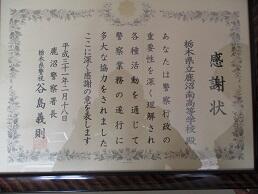 感謝状
栃木県立鹿沼南高等学校 殿
あなたは警察行政の
重要性を深く理解され
各種活動を通じて
警察業務の遂行に
多大な協力をされました
ここに深く感謝の意を表します
平成三十一年二月十八日
鹿沼警察署長
栃木県警視 谷島義則